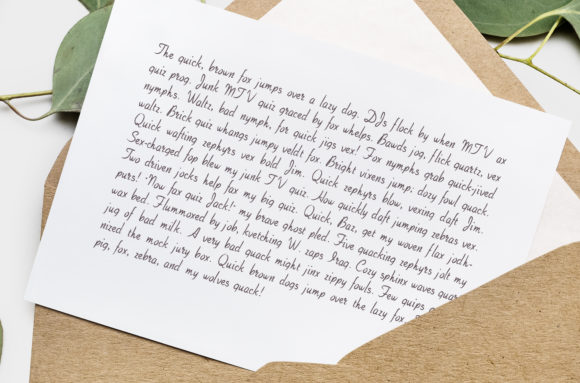 The quick, brown fox jumps over a lazy dog. DJs flock by when MTV ax
quiz prog. Junk MTV quiz graced by fox whelps. Bawds jog, flick quartz, vex
nymphs. Waltz, bad nymph, for quick jigs vex! Fox nymphs grab quick-jived
waltz. Brick quiz whangs jumpy veldt fox. Bright vixens jump; dozy fowl quack.
Quick wafting zephyrs vex bold Jim. Quick zephyrs blow, vexing daft Jim.
Sex-charged fop blew my junk TV quiz. How quickly daft jumping zebras vex.
Two driven jocks help fax my big quiz. Quick, Baz, get my woven flax jodh-
purs! "Now fax quiz Jack!" my brave ghost pled. Five quacking zephyrs jolt my
wax bed. Flummoxed by job, kvetching W. zaps Iraq. Cozy sphinx waves quar
jug of bad milk. A very bad quack might jinx zippy fowls. Few quips
nized the mock jury box. Quick brown dogs jump over the lazy fox.
pig, fox, zebra, and my wolves quack!